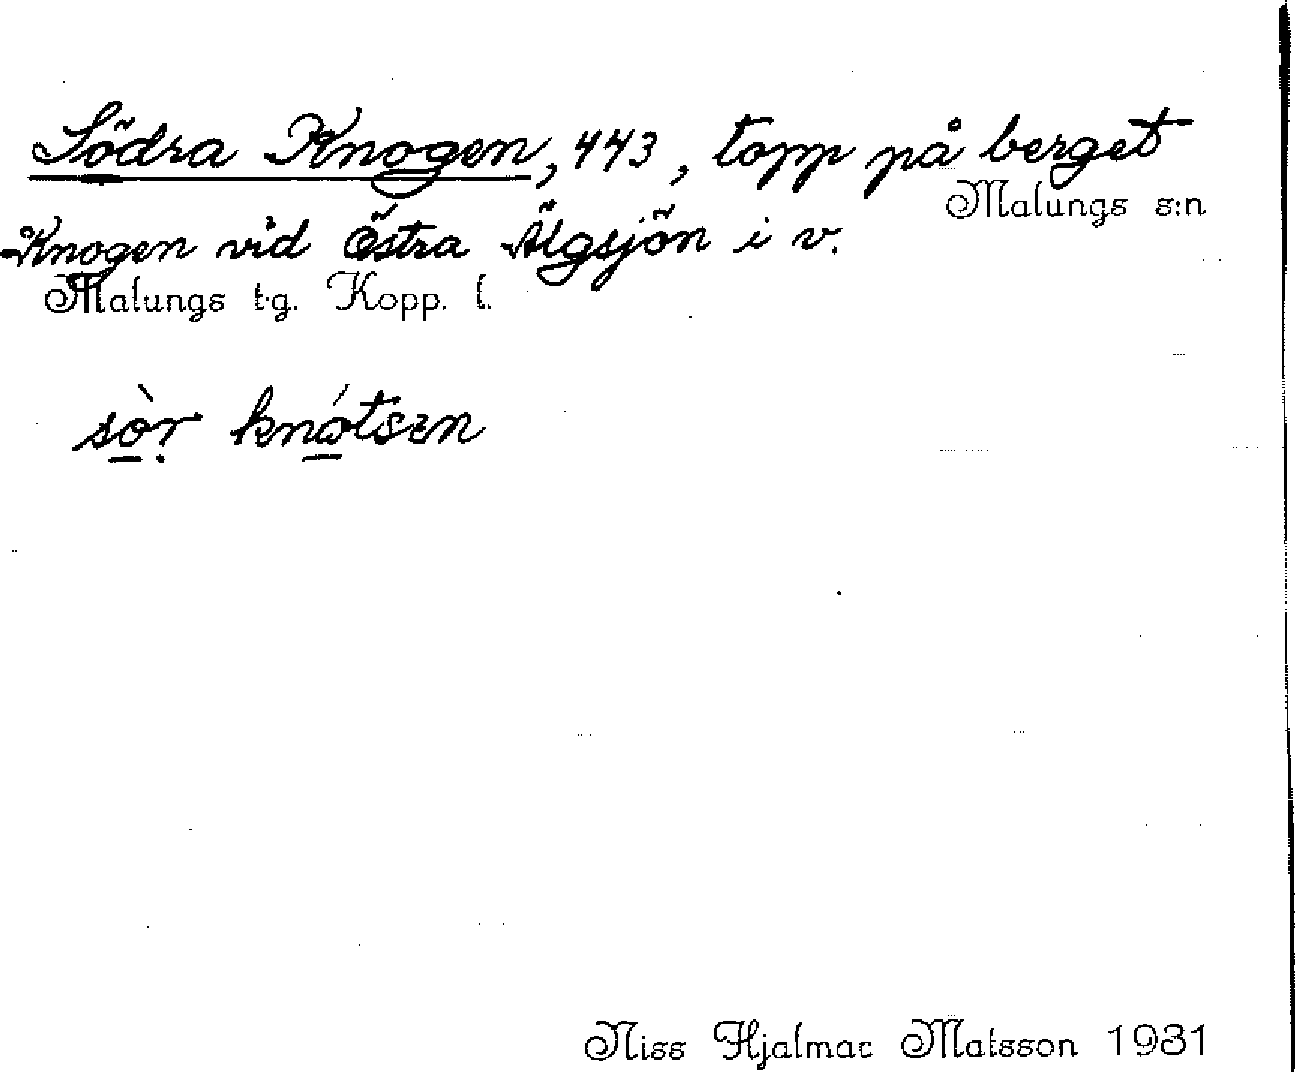 Södra Knogen, 443, topp på berget
Malungs s:n
Knogen vid Östra Älgsjön i v.
Malungs t.g. Kopp. l.
sò̱ṛ knó̱tsen
Niss Hjalmar Matsson 1931